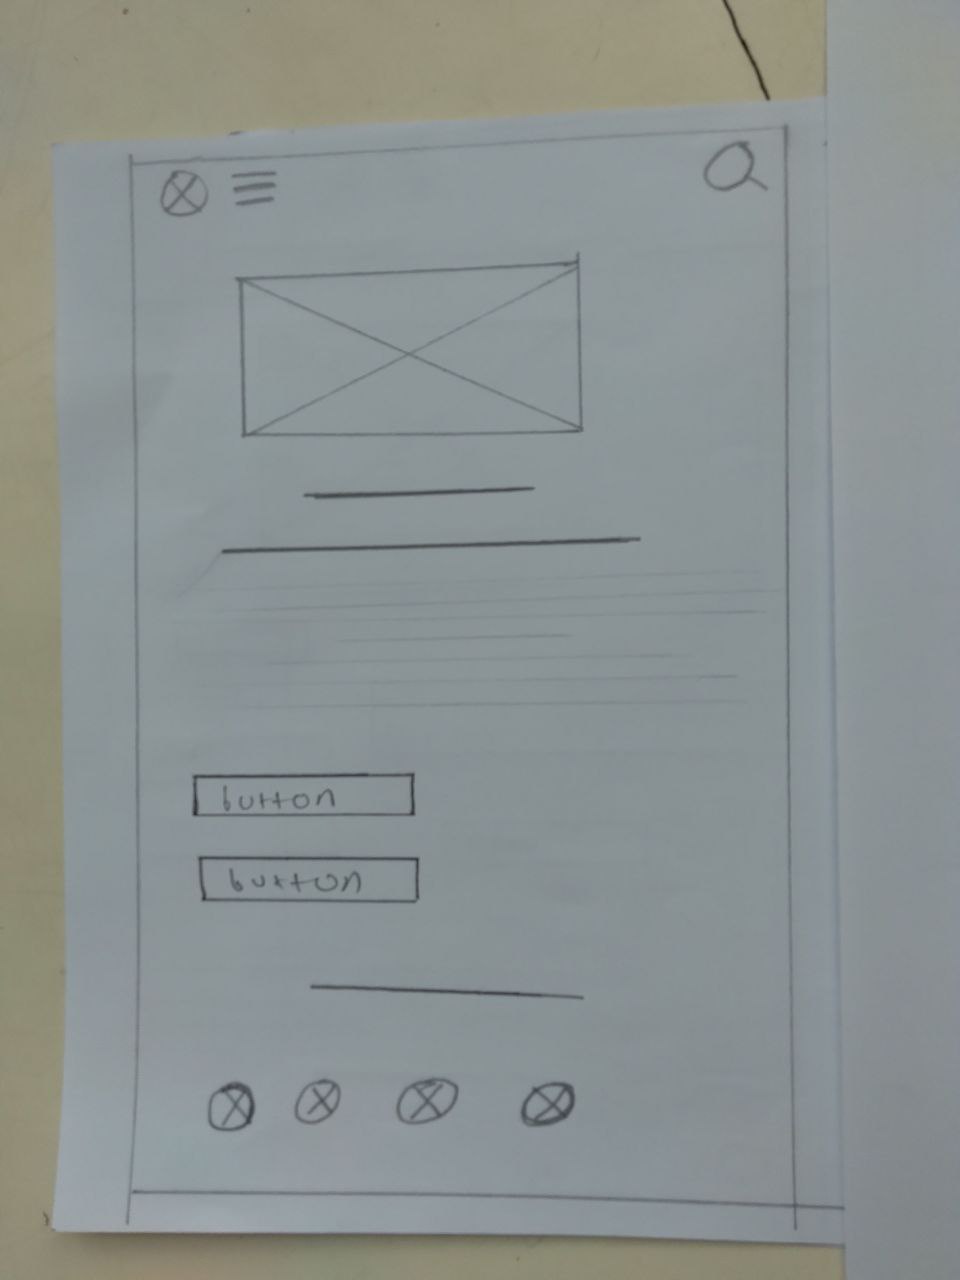 button
button